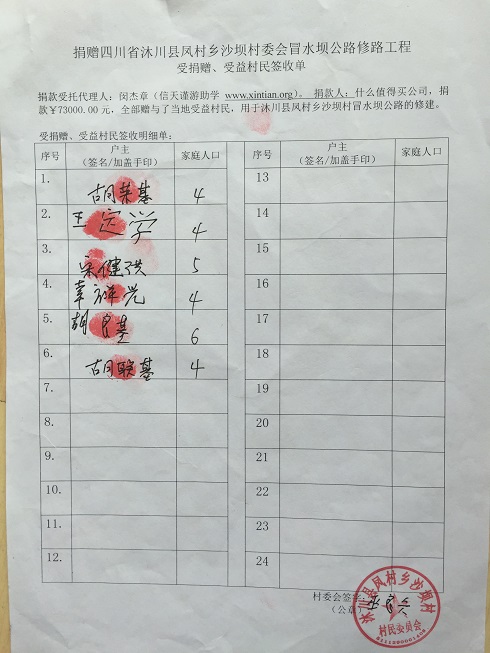 捐赠四川省沐川县凤村乡沙坝村委会冒水坝公路修路工程
受捐赠、受益村民签收单
捐款受托代理人：闵杰章（信天谨游助学 www.xintian.org）。 捐款人：什么值得买公司，捐
款￥73000.00 元，全部赠与了当地受益村民，用于沐川县凤村乡沙坝村冒水坝公路的修建。
受捐赠、受益村民签收明细单：
序号 户主（签名/加盖手印） 家庭人口 序号 户主（签名/加盖手印） 家庭人口
1. 胡荣基 4 13
2. 王定学 4 14
3. 宋健洪 5 15
4. 辜祥党 4 16
5. 胡良基 6 17
6. 胡联基 4 18
7. 19
8. 20
9. 21
10. 22
11. 23
12. 24
村委会签字：
（公章）
沐川县凤村乡沙坝村
村民委员会